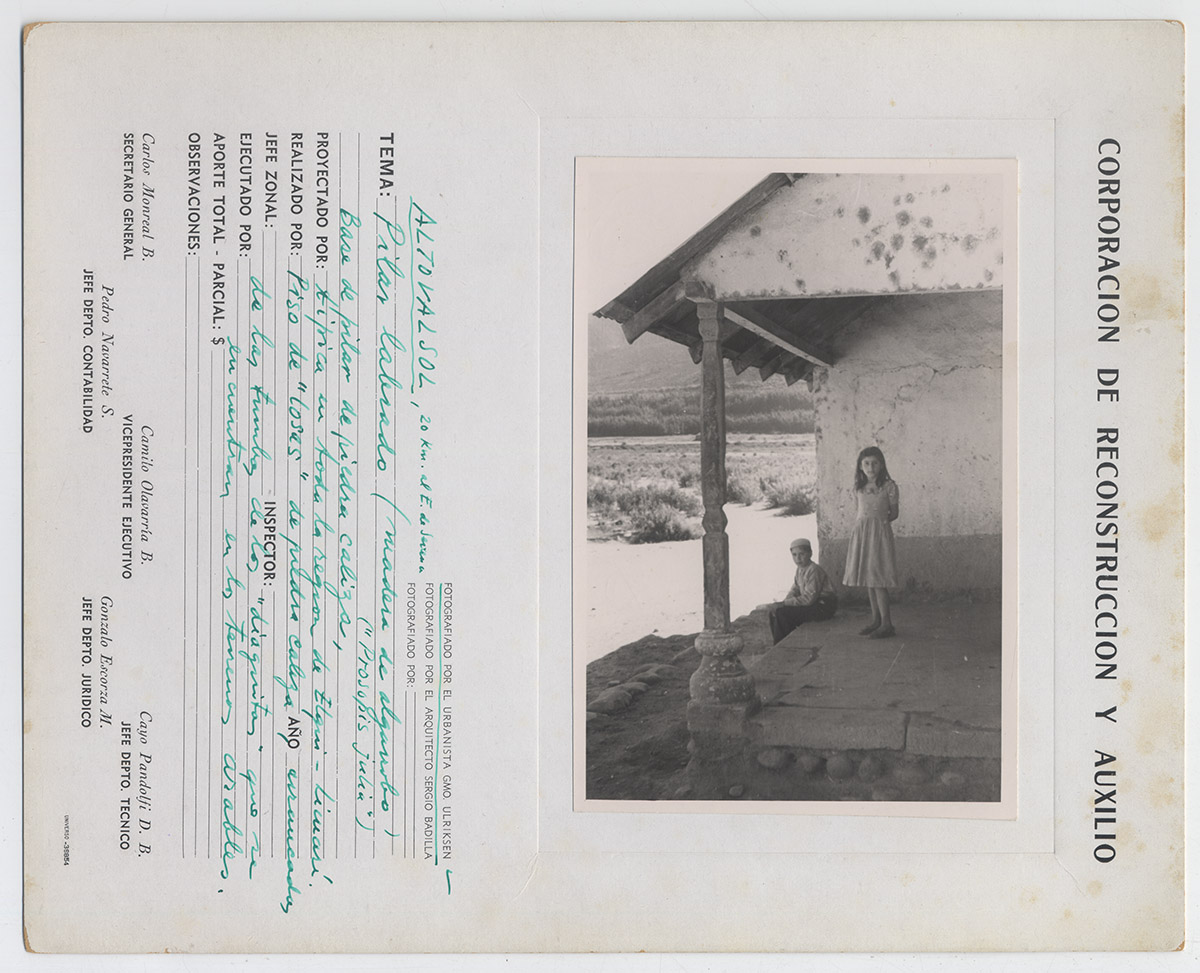 CORPORACION DE RECONSTRUCCION Y AUXILIO
FOTOGRAFIADO POR EL URBANISTA GMO. ULRIKSEN
FOTOGRAFIADO POR EL ARQUITECTO SERGIO BADILLA
FOTOGRAFIADO POR:
ALTOVALSOL, 20 km. al E. de Serena
TEMA: Pilar labrado (madera de algarrobo)
("Prosopis julia")
Base de pilar de piedra caliza,
PROYECTADO POR: típica en toda la region de Elqui - Limarí.
REALIZADO POR: Piso de "losas" de piedra caliza AÑO arrancadas
JEFE ZONAL: INSPECTOR:
de las tumbas de los "diaguitas" que se
EJECUTADO POR:
encuentran en los terrenos arables.
APORTE TOTAL - PARCIAL: $
OBSERVACIONES:
Carlos Monreal B.
SECRETARIO GENERAL
Camilo Olavarría B.
VICEPRESIDENTE EJECUTIVO
Cayo Pandolfi D. B.
JEFE DEPTO. TECNICO
Pedro Navarrete S.
JEFE DEPTO. CONTABILIDAD
Gonzalo Escorza M.
JEFE DEPTO. JURIDICO
UNIVERSO